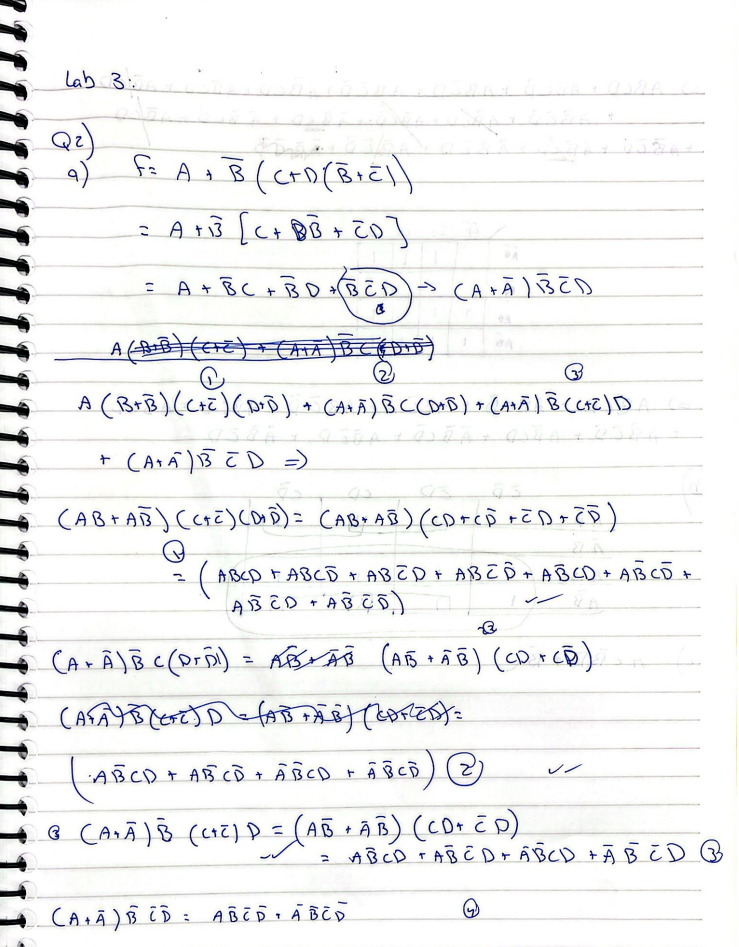 Lab 3:
Q2)
a) F = A + B̅ (C+D(B̅+C̅))
= A+B̅ [C+ DB̅ + C̅D]
= A + B̅C + B̅D + B̅C̅D → (A+A̅) B̅C̅D
A(B+B̅)(C+C̅) + (A+A̅)B̅C(D+D̅)
① ② ③
A(B+B̅)(C+C̅)(D+D̅) + (A+A̅)B̅C(D+D̅) + (A+A̅)B̅(C+C̅)D
+ (A+A̅)B̅ C̅ D ⇒
(AB+AB̅)(C+C̅)(D+D̅) = (AB+AB̅)(CD+CD̅+C̅D+C̅D̅)
① = (ABCD + ABCD̅ + ABC̅D + ABC̅D̅ + AB̅CD + AB̅CD̅ +
AB̅C̅D + AB̅C̅D̅)
(A+A̅)B̅C(D+D̅) = AB̅+A̅B̅ (AB̅+A̅B̅)(CD+CD̅)
(A+A̅)B̅(C+C̅)D = (AB̅+A̅B̅)(CD+C̅D) =
(AB̅CD + AB̅CD̅ + A̅B̅CD + A̅B̅CD̅) ②
③ (A+A̅)B̅ (C+C̅)D = (AB̅+A̅B̅)(CD+C̅D)
= AB̅CD + AB̅C̅D + A̅B̅CD + A̅B̅C̅D ③
(A+A̅)B̅C̅D̅ = AB̅C̅D̅ + A̅B̅C̅D̅ ④